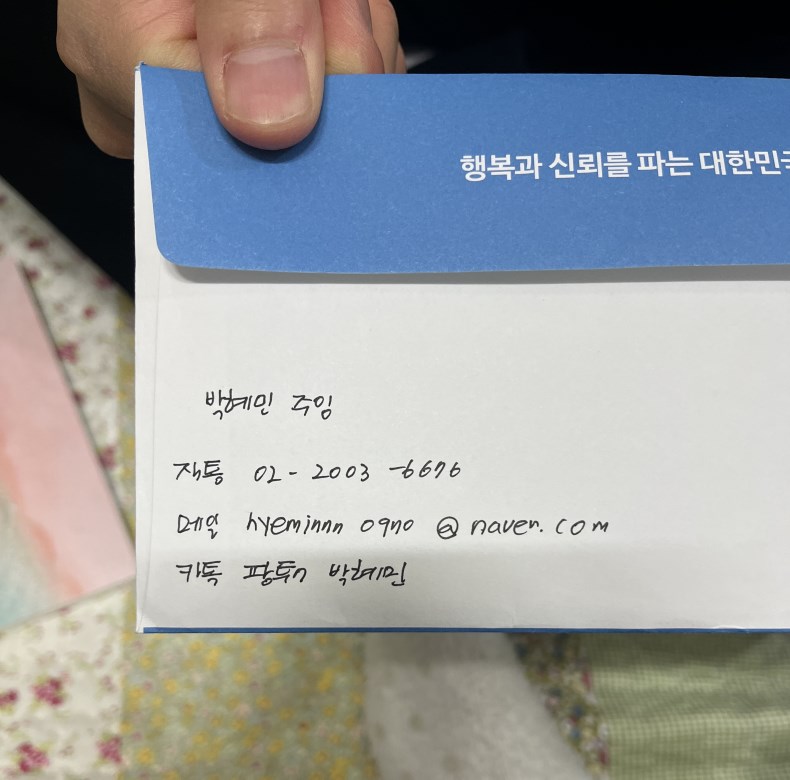 행복과 신뢰를 파는 대한민국
박혜민 주임
직통 02-2003-6676
메일 hyeminnn 0970 @ naver.com
카톡 팡투 박혜민